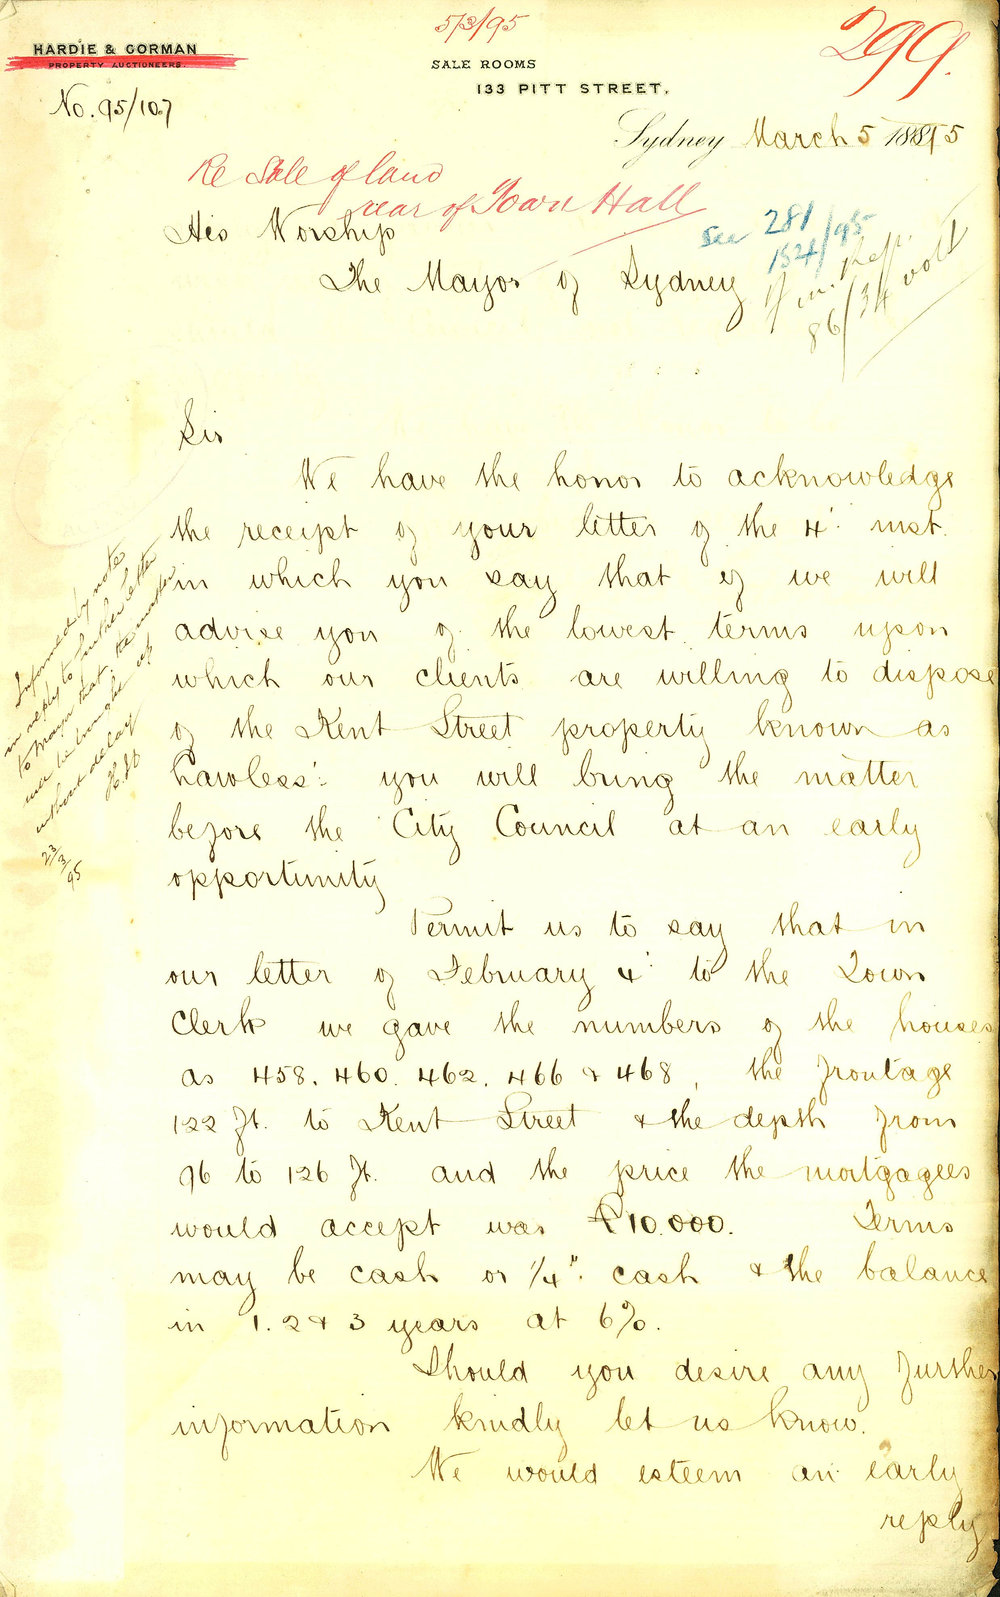 5/3/95
299.
HARDIE & GORMAN
PROPERTY AUCTIONEERS.
SALE ROOMS
133 PITT STREET,
No. 95/107
Sydney March 5 1895
Re Sale of land
rear of Town Hall
His Worship
The Mayor of Sydney
See 281
1524/95
86/34
Sir
We have the honor to acknowledge
the receipt of your letter of the 4' inst.
in which you say that if we will
advise you of the lowest terms upon
which our clients are willing to dispose
of the Kent Street property known as
Lawless' you will bring the matter
before the City Council at an early
opportunity
Permit us to say that in
our letter of February 4' to the Town
Clerk we gave the numbers of the houses
as 458. 460. 462. 466 & 468, the frontage
122 ft. to Kent Street & the depth from
96 to 126 ft. and the price the mortgagees
would accept was £10.000. Terms
may be cash or 1/4" cash & the balance
in 1. 2 & 3 years at 6%.
Should you desire any further
information kindly let us know.
We would esteem an early
reply
Informed by note
in reply to further letter
to Mayor that the matter
will be brought up
without delay
23/3/95